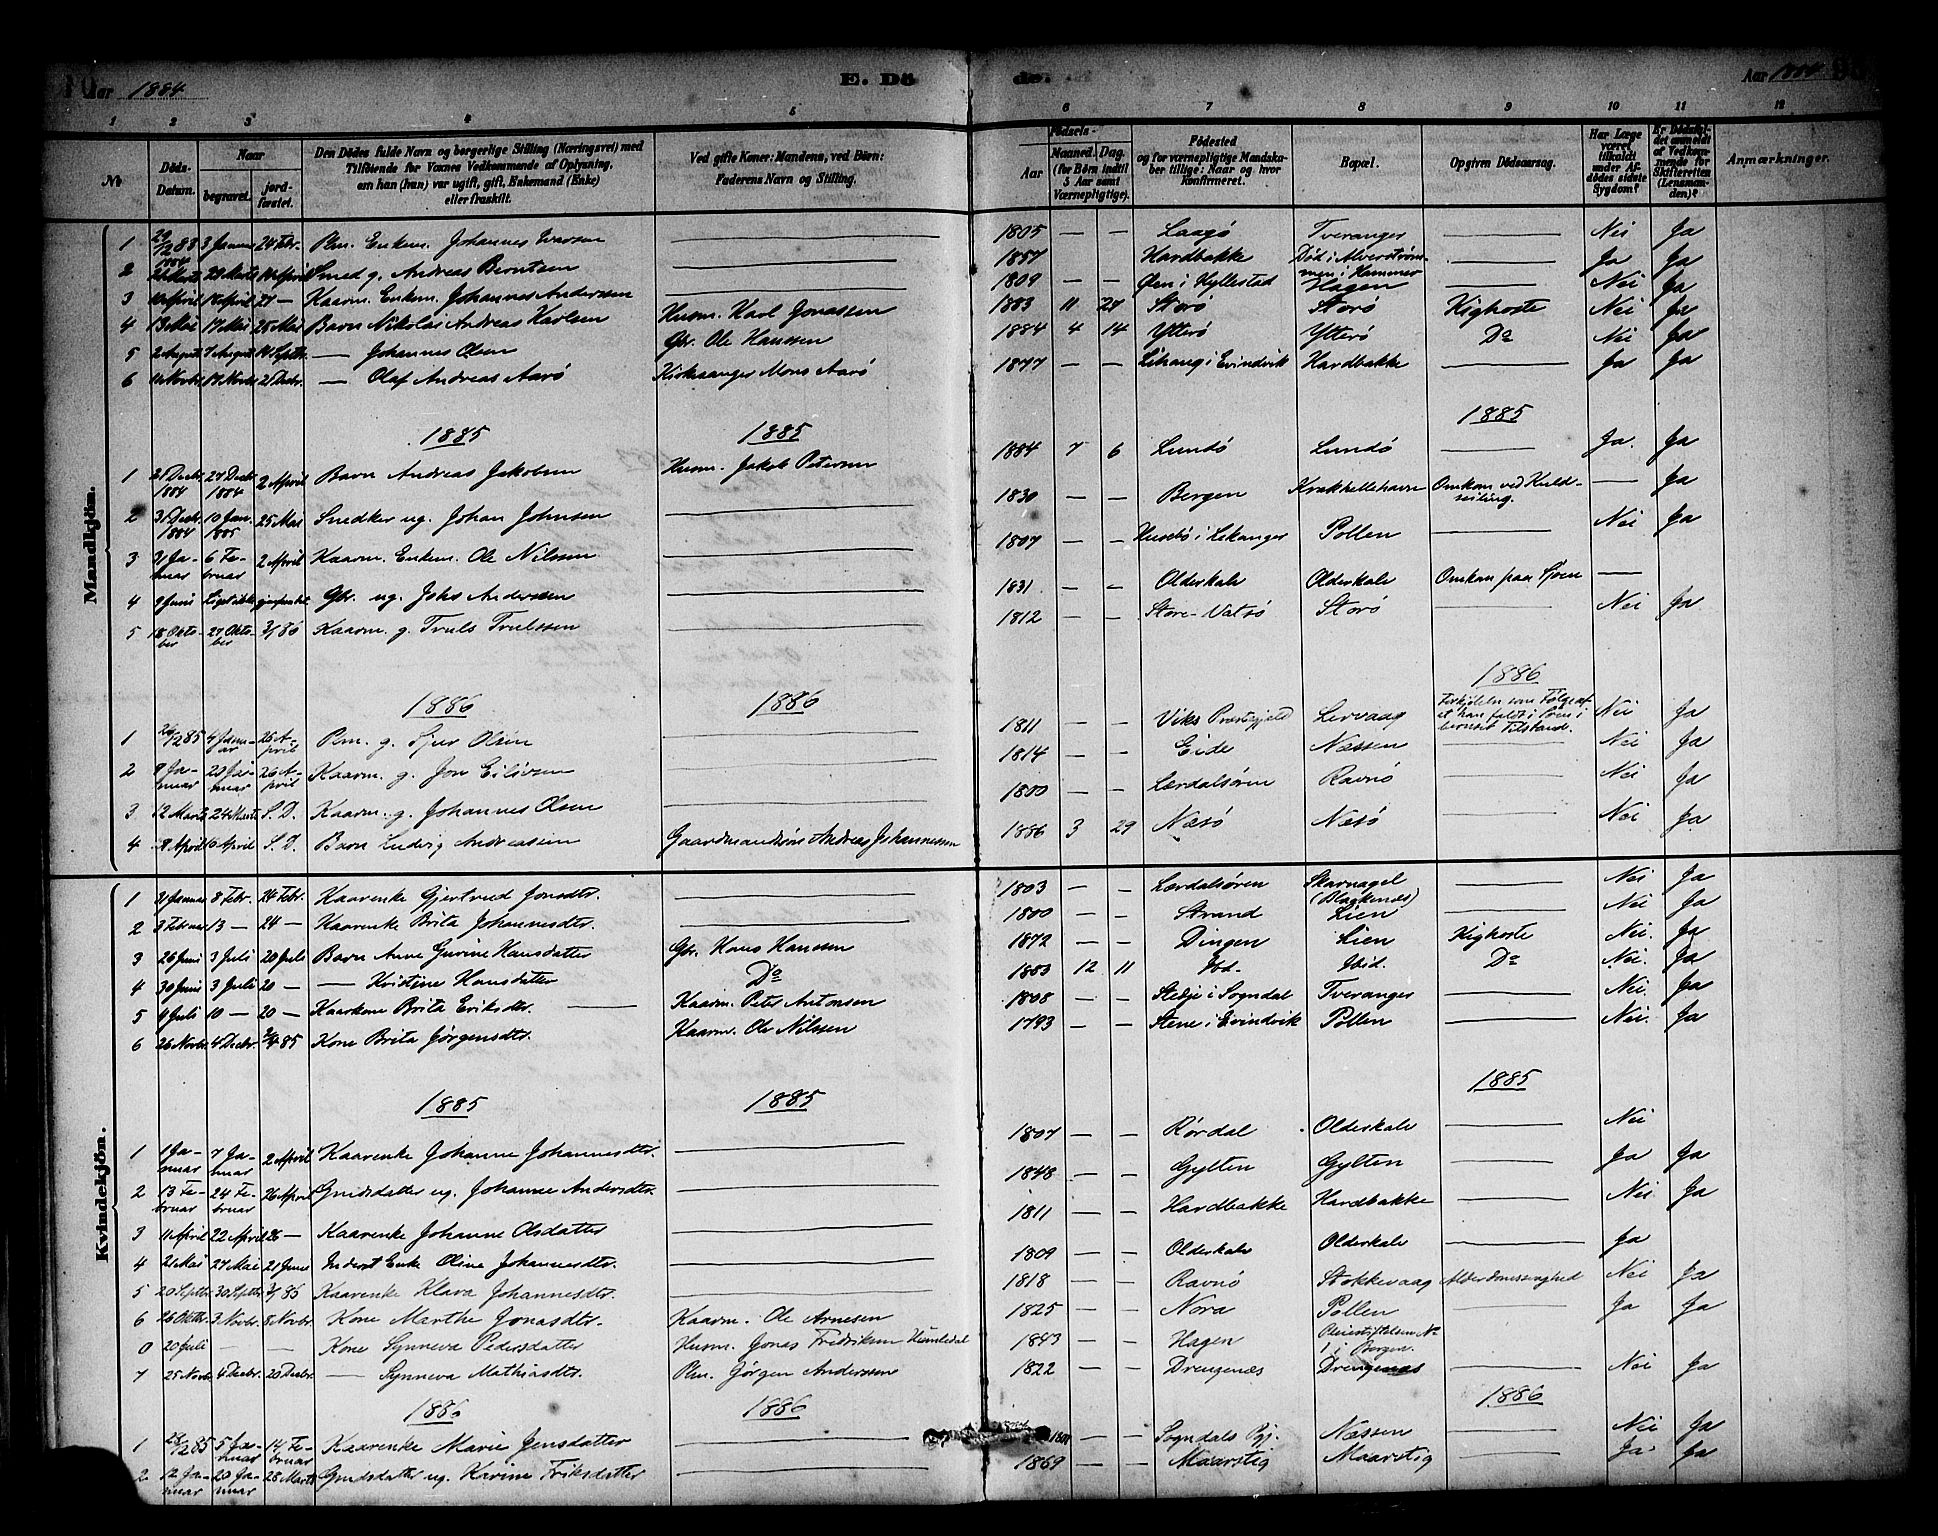 Aar 1884 E. Dö de. Aar 1884
1 2 3 4 5 6 7 8 9 10 11 12
No
Döds-Datum.
Naar
begravet.
jordfæstet.
Den Dödes fulde Navn og borgerlige Stilling (Næringsvei) med
Tilföiende for Voxnes Vedkommende af Oplysning,
om han (hun) var ugift, gift, Enkemand (Enke)
eller fraskilt.
Ved gifte Koner: Mandens, ved Börn:
Faderens Navn og Stilling.
Födsels-
Aar
Maaned. Dag.
(for Børn indtil
5 Aar samt
Værnepligtige).
Födested
og for værnepligtige Mandska-
ber tillige: Naar og hvor
konfirmeret.
Bopæl.
Opgiven Dödsaarsag.
Har Læge
været
tilkaldt
under Af-
dødes sidste
Sygdom?
Er Dødsfal-
det anmeldt
af Vedkom-
mende for
Skifteretten
(Lensman-
den)?
Anmærkninger.
Mandkjön.
1 29/12 83 3 Januar 24 Febr. Pm. Enkem. Johannes Ivarsen — 1805 — — Laagø Tveranger — Nei Ja
2 1884 29 Marts 14 April Smed g. Andreas Berntsen — 1857 Hardbakke Död i Alverstrøm-
men i Hammer Ja Ja
3 18 April 27 — Kaarm. Enkem. Johannes Andersen — 1809 — — Øen i Hyllestad Hagen — Nei Ja
4 13 Mai 17 Mai 25 Mai Barn Nikolai Andreas Karlsen Husm. Karl Jonassen 1883 11 24 Storø Storø Kighoste Nei Ja
5 2 August 7 August 14 Septbr. — Johannes Olsen Gbr. Ole Hanssen 1884 4 14 Ytterø Ytterø Do Nei Ja
6 Novbr. 19 Novbr. 21 Decbr. — Olaf Andreas Aarø Kirkesanger Mons Aarø 1877 — — i Evindvik Hardbakke — Ja Ja
1885 1885 1885
1 21 Decbr. 1884 27 Decbr. 1884 2 April Barn Andreas Jakobsen Husm. Jakob Petersen 1884 7 6 Lundø Lundø — Ja. Ja
2 31 Decbr. 1884 10 Jan. 1885 25 Mai Snedker ug. Johan Johnsen — 1830 — — Bergen Krakhellehavn Omkom ved Kuld-
seiling. — Ja
3 31 Januar 6 Februar 2 April Kaarm. Enkem. Ole Nilssen — 1807 — — Husebø i Lekanger Pollen — Nei Ja
4 9 Juni Liget ikke gjenfundet Gbr. ug. Johs Anderssen — 1831 — — Olderkale Olderkale Omkom paa Sjøen —
5 18 Oktober 27 Oktober 3/1 86 Kaarm. g. Truls Trulssen — 1812 — — Store-Vatsø Storø — Nei Ja
1886 1886 1886
1 26/12 85 4 Januar 26 April Pm. g. Sjur Olsen — 1811 Viks Præstegjeld Leirvaag Forkjølelse som Følge af
at han faldt i Søen i
beruset Tilstand. Nei Ja
2 9 Januar 20 Januar 26 April Kaarm. g. Jon Eilivsen — 1814 — — Eide Næssen — Nei Ja
3 12 Marts 24 Marts S. D. Kaarm. g. Johannes Olsen — 1800 — — Lærdalsøren Ravnø — Nei Ja
4 9 April 10 April S. D. Barn Ludvig Andreassen Gaardmandssøn Andreas Johannessen 1886 3 29 Næsø Næsø — Nei Ja
Kvindekjön.
1 21 Januar 8 Febr. 24 Febr. Kaarenke Gjertrud Jonsdtr. — 1803 — — Lærdalsøren Skarnagel
(Blaakenæs) — Nei Ja
2 3 Februar 13 — 24 — Kaarenke Brita Johannesdtr. — 1800 — — Strand Lien — Nei Ja
3 26 Juni 3 Juli 20 Juli Barn Anne Gurine Hansdatter Gbr. Hans Hanssen 1872 — — Dingen Lien Kighoste Nei. Ja
4 30 Juni 3 Juli 20 — — Kristine Hansdatter Do 1883 12 11 Ibd. Ibid. Do Nei. Ja
5 4 Juli 10 — 20 — Kaarkone Brita Eriksdtr. — Kaarm. Peter Antonsen 1808 — — Stedje i Sogndal Tveranger — Nei. Ja
6 26 Novbr. 4 Decbr. 2/4 85 Kone Brita Jørgensdtr. Kaarm. Ole Nilssen 1793 — — Stene i Evindvik Pollen — Nei. Ja
1885 1885 1885
1 1 Januar 7 Januar 2 April Kaarenke Johanne Johannesdtr. — 1807 — — Rørdal Olderkale — Nei
2 13 Februar 24 Februar 26 April Gmdsdatter ug. Johanne Andersdtr. — 1848 — — Gylten Gylten — Ja Ja
3 11 April 22 April 26 — Kaarenke Johanne Olsdatter — 1811 — — Hardbakke Hardbakke — Nei Ja
4 21 Mai 27 Mai 21 Juni Inderst Enke Oline Johannesdtr. — 1809 — — Olderkale Olderkale — Ja
5 20 Septbr. 30 Septbr. 3/1 86 Kaarenke Klara Johannesdtr. — 1818 — — Ravnø Stokkevaag Alderdomssvaghed Nei Ja
6 26 Oktbr. 3 Novbr. 8 Novbr. Kone Marthe Jonasdtr. Kaarm. Ole Arnesen 1825 — — Nora Pollen — Ja Ja
0 20 Juli — — Kone Synneva Pedersdatter Husm. Jonas Fredriksen Humledal 1843 — — Hagen Pleiestiftelsen No
1 i Bergen.
7 25 Novbr. 4 Decbr. 20 Decbr. — Synneva Mathiasdtr. Pm. Jørgen Anderssen 1822 — — Drengenæs Drengenæs — Nei Ja
1886 1886 1886
1 28/12 85 5 Januar 14 Februar Kaarenke Marie Jensdatter — — — Sogndals Pgj. Næssen — Nei Ja
2 12 Januar 20 Januar 28 Marts Gmdsdatter ug. Karine Eriksdatter — 1869 — — Maarstig Maarstig — Ja Ja